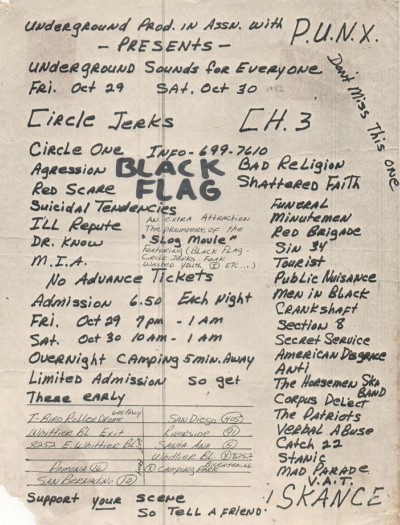 Underground Prod. in Assn. with P.U.N.X.
- PRESENTS -
Underground Sounds for Everyone
Fri. Oct 29 Sat. Oct 30 1982
Don't Miss This one
Circle Jerks
CH. 3
Circle One INFO - 699-7610
Agression
Red Scare
BLACK FLAG
Bad Religion
Shattered Faith
Suicidal Tendencies
Ill Repute
Dr. Know
M.I.A.
An Extra Attraction
The premiere of the
"Slog Movie"
featuring (Black Flag -
Circle Jerks - Fear
Wasted Youth, ETC...)
Funeral
Minutemen
Red Brigade
Sin 34
Tourist
Public Nuisance
Men in Black
Crankshaft
Section 8
Secret Service
American Disgrace
Anti
The Horsemen Ska Band
Corpus Delect
The Patriots
Verbal Abuse
Catch 22
Stanic
Mad Parade
V.A.T.
SKANCE
No Advance Tickets
Admission 6.50 Each Night
Fri. Oct 29 7pm - 1 AM
Sat. Oct 30 10am - 1 AM
Overnight Camping 5 min. Away
Limited Admission So get
There early
T-Bird Roller Drome
Whittier Bl Exit
8252 E Whittier Bl.
605 Fwy
Pomona 60
San Bernardino 10
San Diego 405
Riverside 91
Santa Ana 5
Whittier Bl. 8252
Camping Park
Support your scene
So Tell a friend!